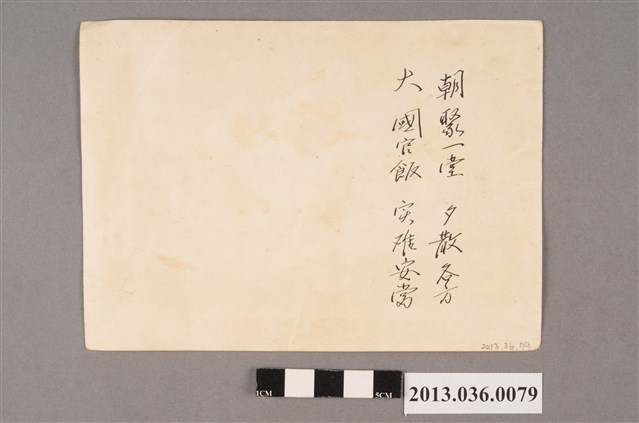 朝聚一堂 夕散各方
大國官飯 实难安嘗
2013.36.79
1CM 5CM
2013.036.0079